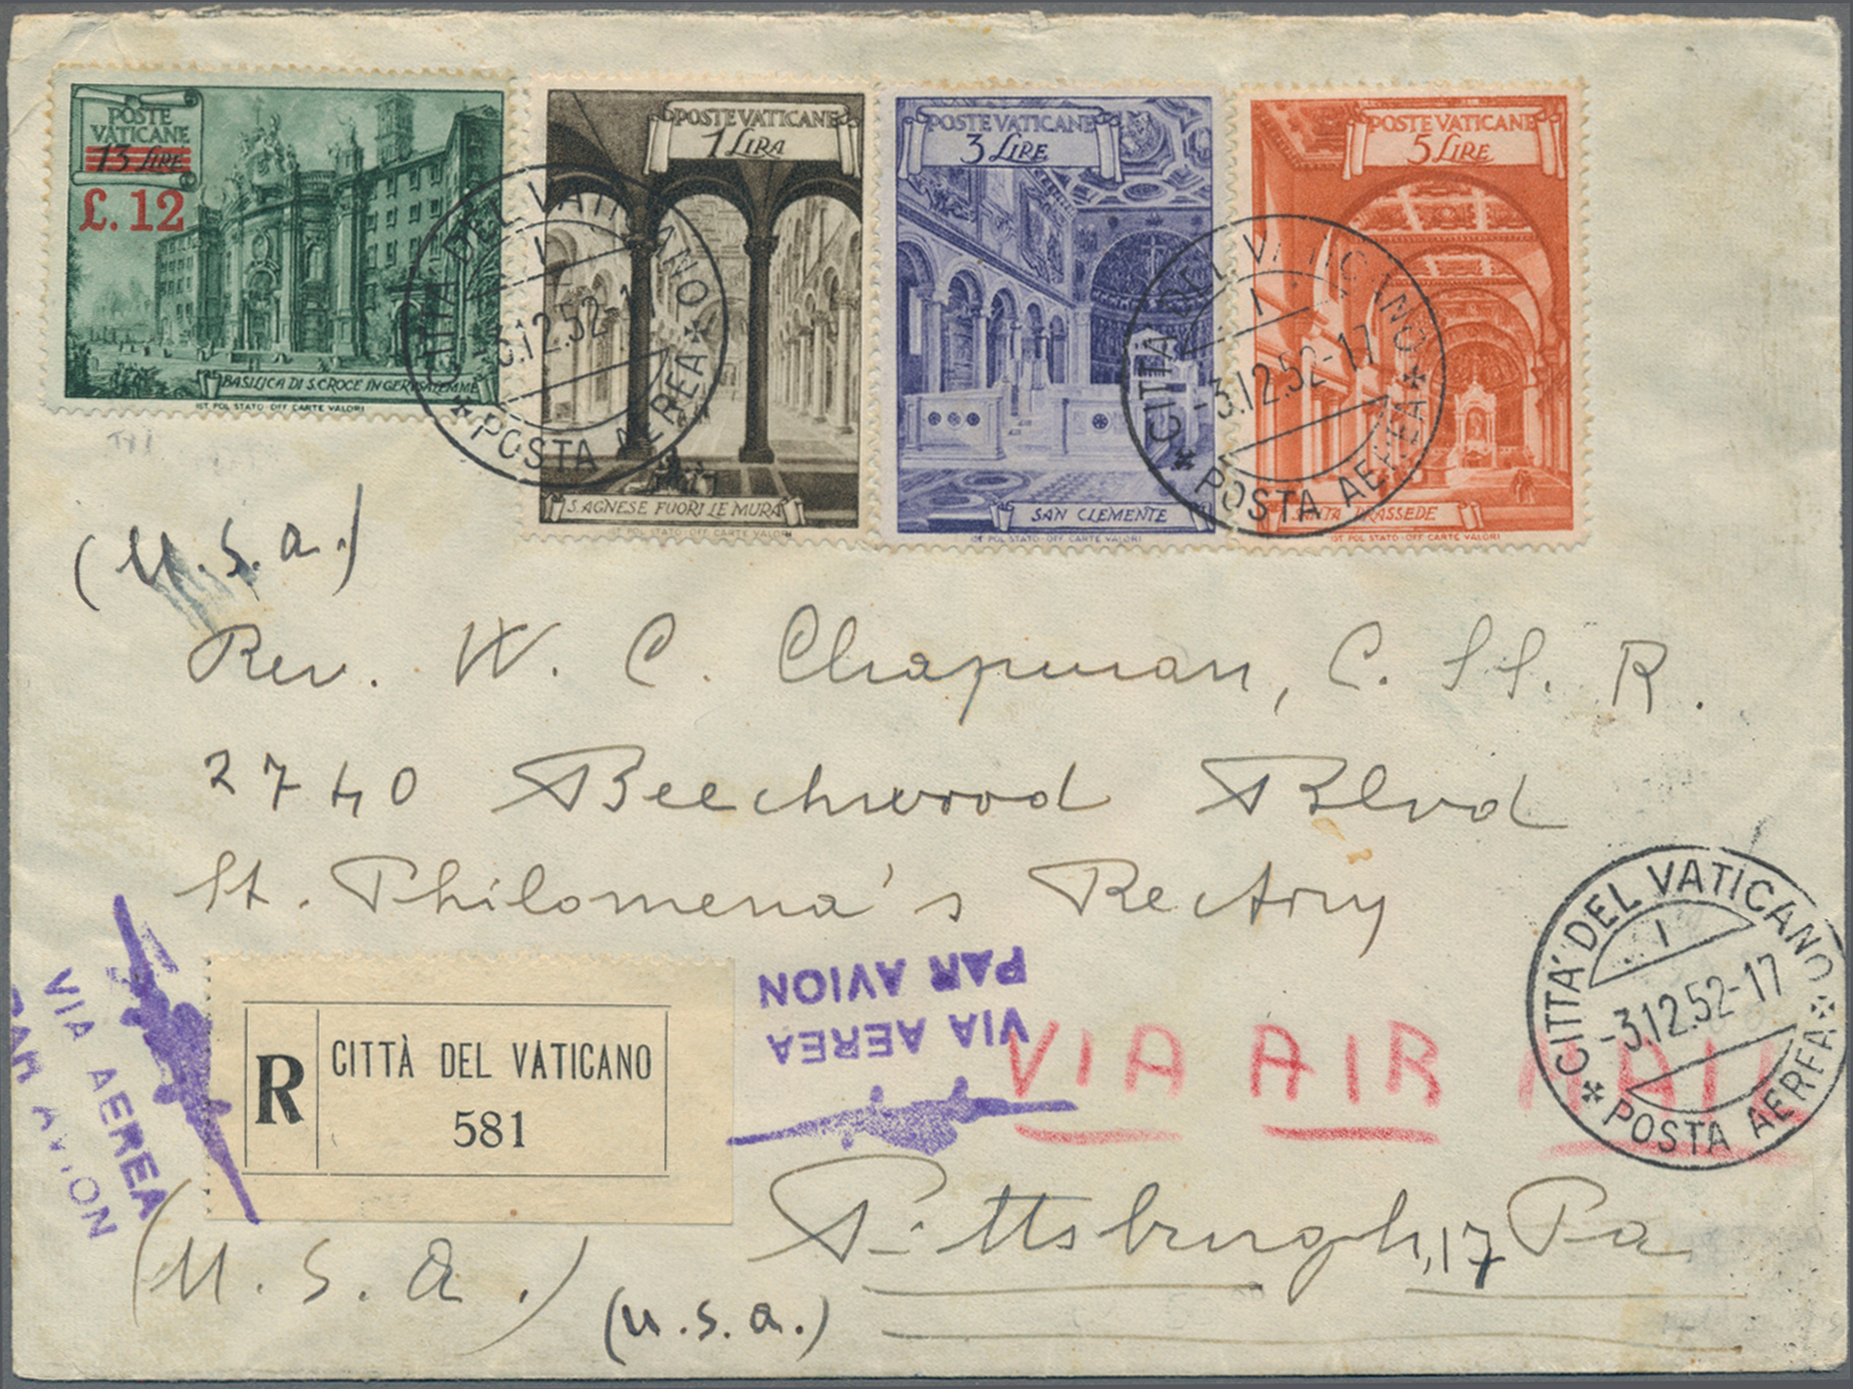 POSTE
VATICANE
13 LIRE
£. 12
BASILICA DI S. CROCE IN GERUSALEMME
IST. POL. STATO · OFF. CARTE VALORI
POSTE VATICANE
1 LIRA
S. AGNESE FUORI LE MURA
IST. POL. STATO · OFF. CARTE VALORI
POSTE VATICANE
3 LIRE
SAN CLEMENTE
IST. POL. STATO · OFF. CARTE VALORI
POSTE VATICANE
5 LIRE
SANTA PRASSEDE
IST. POL. STATO · OFF. CARTE VALORI
CITTA' DEL VATICANO
1
3.12.52-1
POSTA AEREA
CITTA' DEL VATICANO
1
-3.12.52-17
POSTA AEREA
(U.S.A.)
Rev. W. C. Chapman, C. SS. R.
2740 Beechwood Blvd
St. Philomena's Rectory
CITTA' DEL VATICANO
1
-3.12.52-17
POSTA AEREA
VIA AEREA
PAR AVION
R
CITTÀ DEL VATICANO
581
VIA AEREA
PAR AVION
VIA AIR MAIL
Pittsburgh, 17 Pa
(U.S.A.)
(U.S.A.)